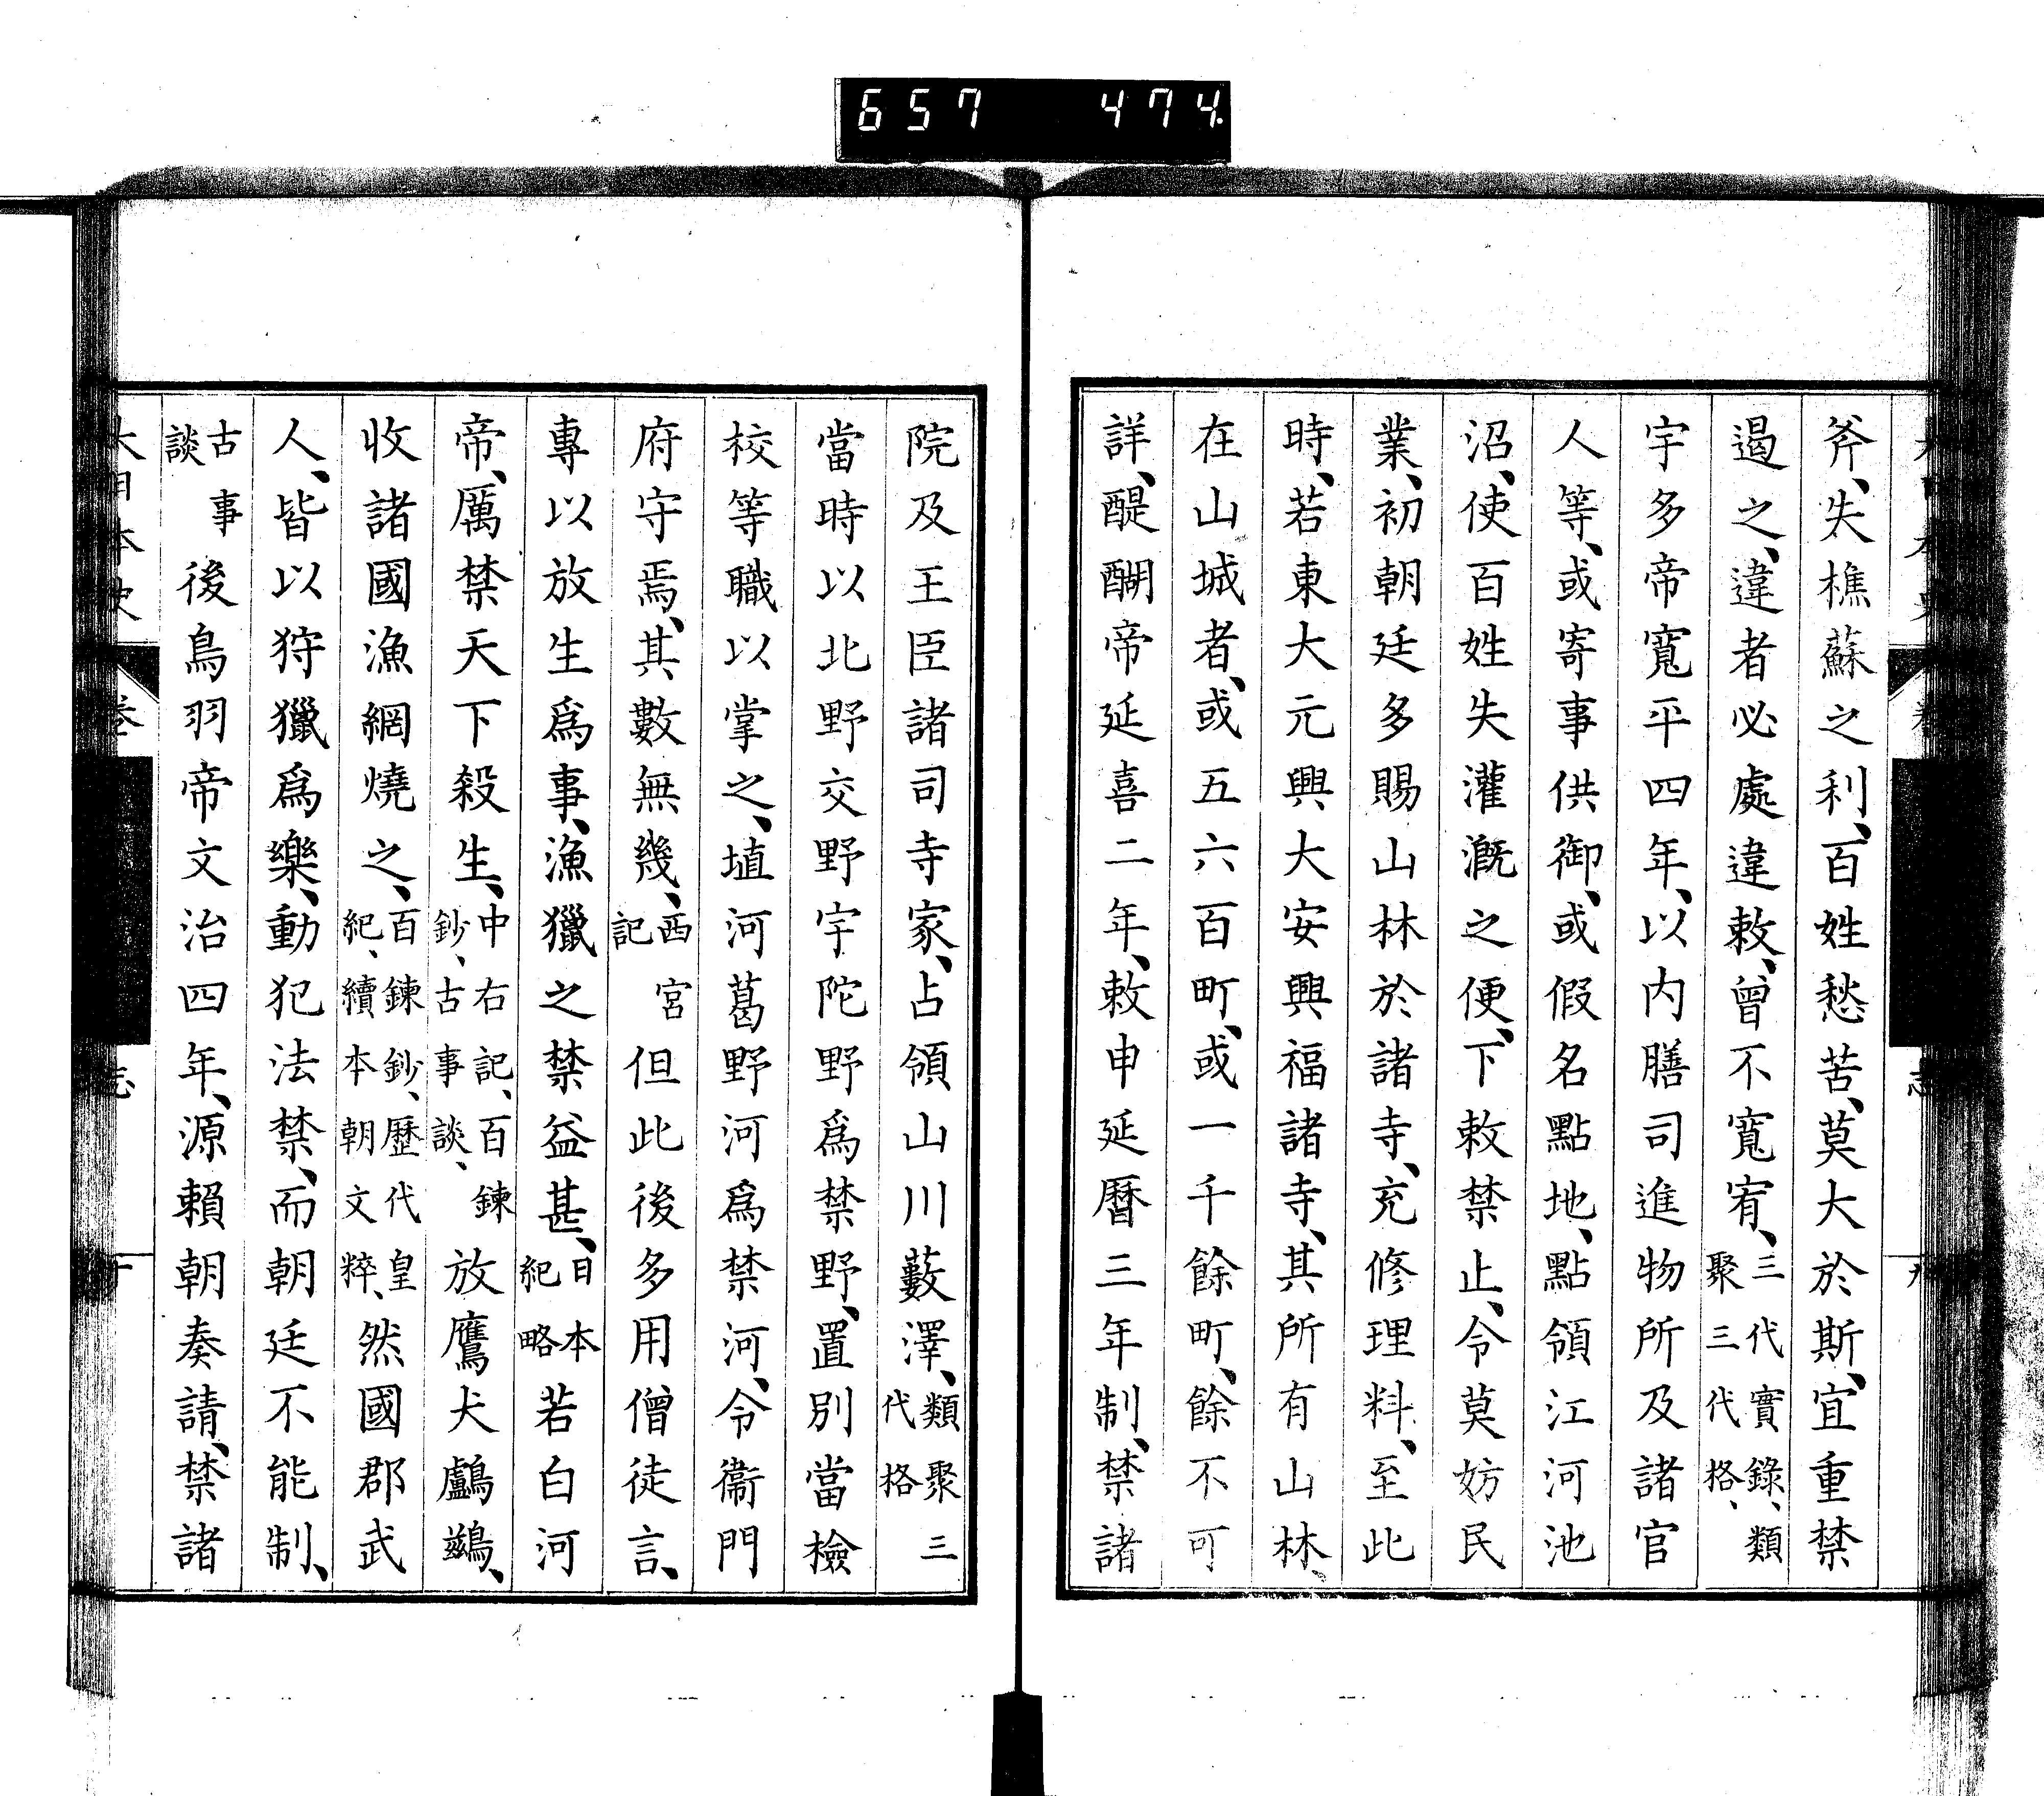 657 474
斧、失樵蘇之利、百姓愁苦、莫大於斯、宜重禁
遏之、違者必處違敕、曾不寬宥、三代實錄、類聚三代格、
宇多帝寬平四年、以内膳司進物所及諸官
人等、或寄事供御、或假名點地、點領江河池
沼、使百姓失灌漑之便、下敕禁止、令莫妨民
業、初朝廷多賜山林於諸寺、充修理料、至此
時、若東大元興大安興福諸寺、其所有山林、
在山城者、或五六百町、或一千餘町、餘不可
詳、醍醐帝延喜二年、敕申延曆三年制、禁諸
院及王臣諸司寺家、占領山川藪澤、類聚三代格
當時以北野交野宇陀野爲禁野、置別當檢
校等職以掌之、埴河葛野河爲禁河、令衞門
府守焉、其數無幾、西宮記但此後多用僧徒言、
專以放生爲事、漁獵之禁益甚、日本紀略若白河
帝、厲禁天下殺生、中右記、百鍊鈔、古事談、放鷹犬鸕鷀、
收諸國漁網燒之、百鍊鈔、歷代皇紀、續本朝文粹、然國郡武
人、皆以狩獵爲樂、動犯法禁、而朝廷不能制、
古事談後鳥羽帝文治四年、源賴朝奏請、禁諸